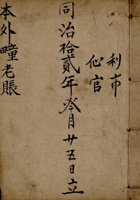 利市
仙官
同治拾貳年癸月廿五日立
本外疃老賬